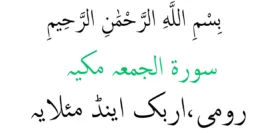 بِسْمِ اللَّهِ الرَّحْمَٰنِ الرَّحِيمِ
سورة الجمعہ مکیہ
رومی،اربک اینڈ مئلایہ